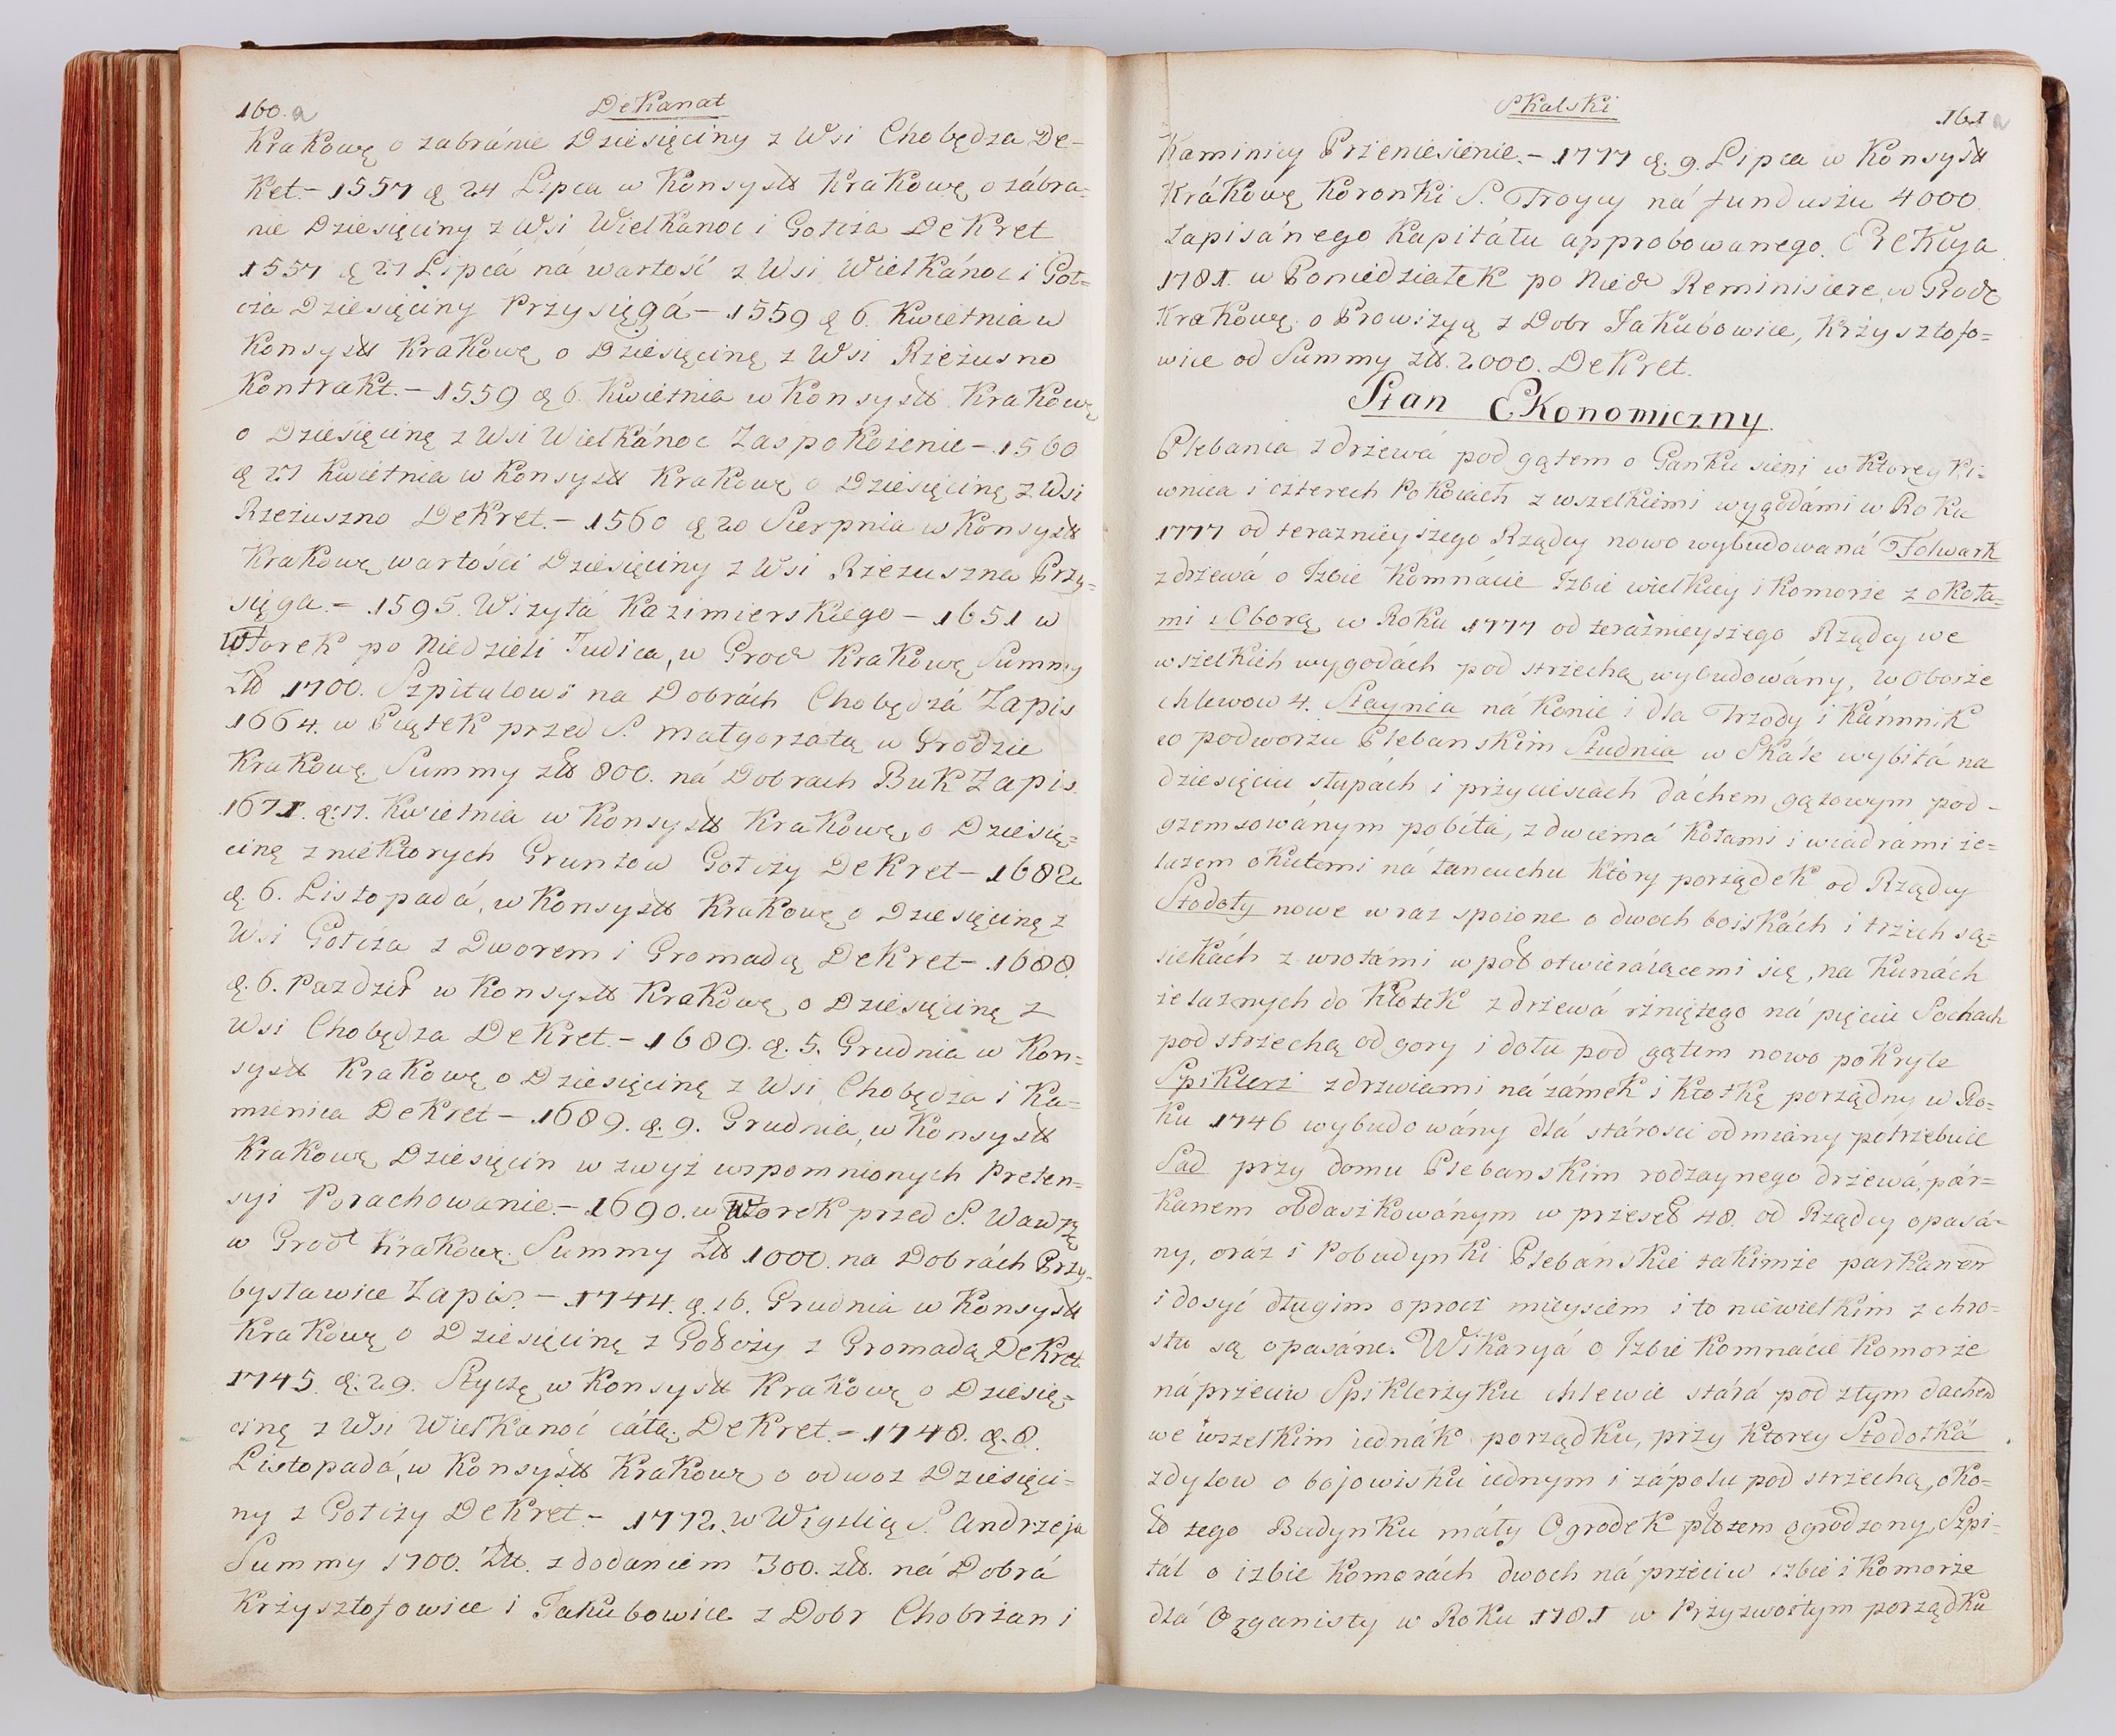 160. a
Dekanat
Krakowę o zabránie Dziesięciny z Wsi Chobędza De-
kret.- 1557 d. 24 Lipca w Konsystł Krakowę o zábra-
nie Dziesięciny z Wsi Wielkanoc i Gołcza Dekret
1557 d. 27 Lipcá ná wartość z Wsi Wielkánoc i Goł=
cza Dziesięciny Przysięgá - 1559 d. 6. Kwietnia w
Konsystł Krakowę o Dziesięcinę z Wsi Rżeżusno
Kontrakt. - 1559 d. 6. Kwietnia w Konsystł Krakowę
o Dziesięcinę z Wsi Wielkánoc Zaspokoienie - 1560
d. 27 Kwietnia w Konsystł Krakowę o Dziesięcinę z Wsi
Rzeżuszno Dekret. - 1560 d. 20 Sierpnia w Konsystł
Krakowę wartości Dziesięciny z Wsi Rzeżuszna Przy=
sięga. - 1595. Wizytá Kazimierskiego - 1651 w
Wtorek po Niedzieli Judica, w Grod Krakowę Summy
Złł 1700. Szpitalowi na Dobrách Chobędzá Zapis
1664. w Piątek przed S. Małgorzatą w Grodzie
Krakowę Summy złł 800. ná Dobrach Buk Zapis.
1671. d. 17. Kwietnia w Konsystł Krakowę, o Dziesię=
cinę z niektorych Gruntow Gołczy Dekret - 1682
d. 6. Listopadá, w Konsystł Krakowę o Dziesięcinę z
Wsi Gołcza z Dworem i Gromadą Dekret - 1688.
d. 6. Paździeł w Konsystł Krakowę o Dziesięcinę z
Wsi Chobędza Dekret. - 1689. d. 5. Grudnia w Kon=
systł Krakowę o Dziesięcinę z Wsi Chobędza i Ka=
mienica Dekret - 1689. d. 9. Grudnia, w Konsystł
Krakowę Dziesięcin w zwyż wspomnionych Preten=
syi Porachowanie. - 1690. w Wtorek przed S. Wawrz
w Grod Krakowę. Summy Złł 1000. na Dobrách Przy=
bysławice Zapis. - 1744. d. 16. Grudnia w Konsystł
Krakowę o Dziesięcinę z Gołczy z Gromadą Dekret
1745. d. 29. Styczę w Konsystł Krakowę o Dziesię=
cinę z Wsi Wielkanoć cáłą. Dekret. - 1748. d. 8.
Listopadá, w Konsystł Krakowę o odwoz Dziesięci-
ny z Gołczy Dekret. - 1772. w Wigilią S. Andrzeja
Summy 1700. Złł. z dodaniem 300. złł. ná Dobrá
Krżysztofowice i Jakubowice z Dobr Chobrżan i
Skalski
161 a
Kaminicy Przeniesienie. - 1777 d. 9. Lipca w Konsystł
Krákowę Koronki S. Troycy ná funduszu 4000
zapisánego Kapitáłu approbowanego. Erekcya
1781. w Poniedziałek po Nied Reminiscere, w Grod
Krakowę. o Prowizyą z Dobr Jakubowice, Krżysztofo=
wice od Summy złł. 2000. Dekret.
Stan Ekonomiczny.
Plebania z drżewá pod gątem o Ganku sieni w ktorey Pi-
wnica i czterech Pokoiach z wszelkiemi wygodámi w Roku
1777 od teraznieyszego Rządcy nowo wybudowaná Folwark
z drżewá o Izbie Komnácie Izbie wielkiey i Komorże z okoła=
mi i Oborą w Roku 1777 od teraznieyszego Rządcy we
wszelkich wygodách pod strzechą wybudowány, w Oborże
chlewow 4. Staynia ná Konie i dla Trzody i Kármnik
w podworżu Plebanskim Studnia w Skále wybitá na
dziesięciu słupách i przyciesiach dáchem gątowym pod-
gzemsowánym pobitá, z dwiemá kołami i wiadrámi że=
lazem okutemi ná łancuchu ktory porządek od Rządcy
Stodoły nowe w raz spoione o dwoch boiskách i trzech są=
siekách z wrotámi w poł otwieráiącemi się, na Kunách
żelaznych do Kłotek z drżewá rżniętego ná pięciu Sochach
pod strzechą od gory i dołu pod gątem nowo pokryte
Spiklerż z drzwiami ná zámek i Kłotkę porządny w Ro=
ku 1746 wybudowány dlá stárosci odmiány potrzebuie
Sad przy domu Plebanskim rodzaynego drżewá, pár=
kanem obdaszkowánym w przeseł 48. od Rządcy opasá=
ny, oráz i Pobudynki Plebánskie takimże parkanem
i dosyć długim oprocz mieyscem i to niewielkim z chro=
stu są opasáne. Wikaryá o Izbie Komnácie Komorże
náprzeciw Spiklerżyku chlewie stárá pod złym dachem
we wszelkim iednák porządku, przy ktorey Stodołká
z dylow o bojowisku iednym i zápolu pod strzechą, oko=
ło tego Budynku máły Ogrodek płotem ogrodzony, Szpi=
tál o izbie Komorách dwoch ná przeciw izbie i Komorże
dlá Organisty w Roku 1781 w Przyzwoitym porządku